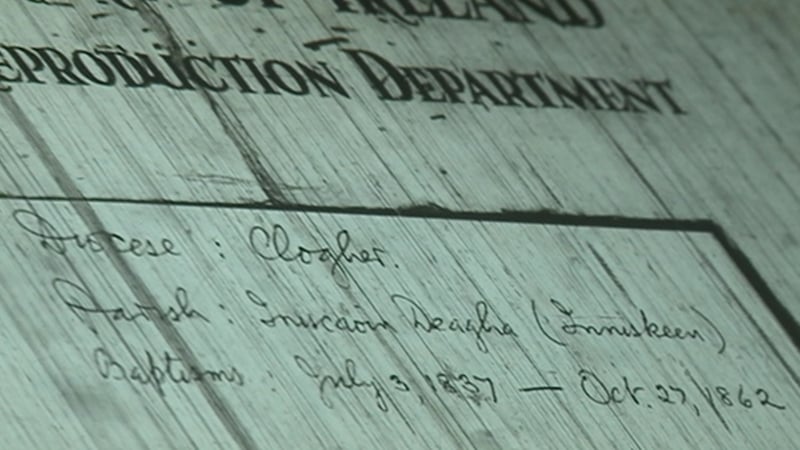 OF IRELAND
REPRODUCTION DEPARTMENT
Diocese : Clogher.
Parish : Iniscaoin Deagha (Inniskeen)
Baptisms : July 3, 1837 — Oct. 27, 1862